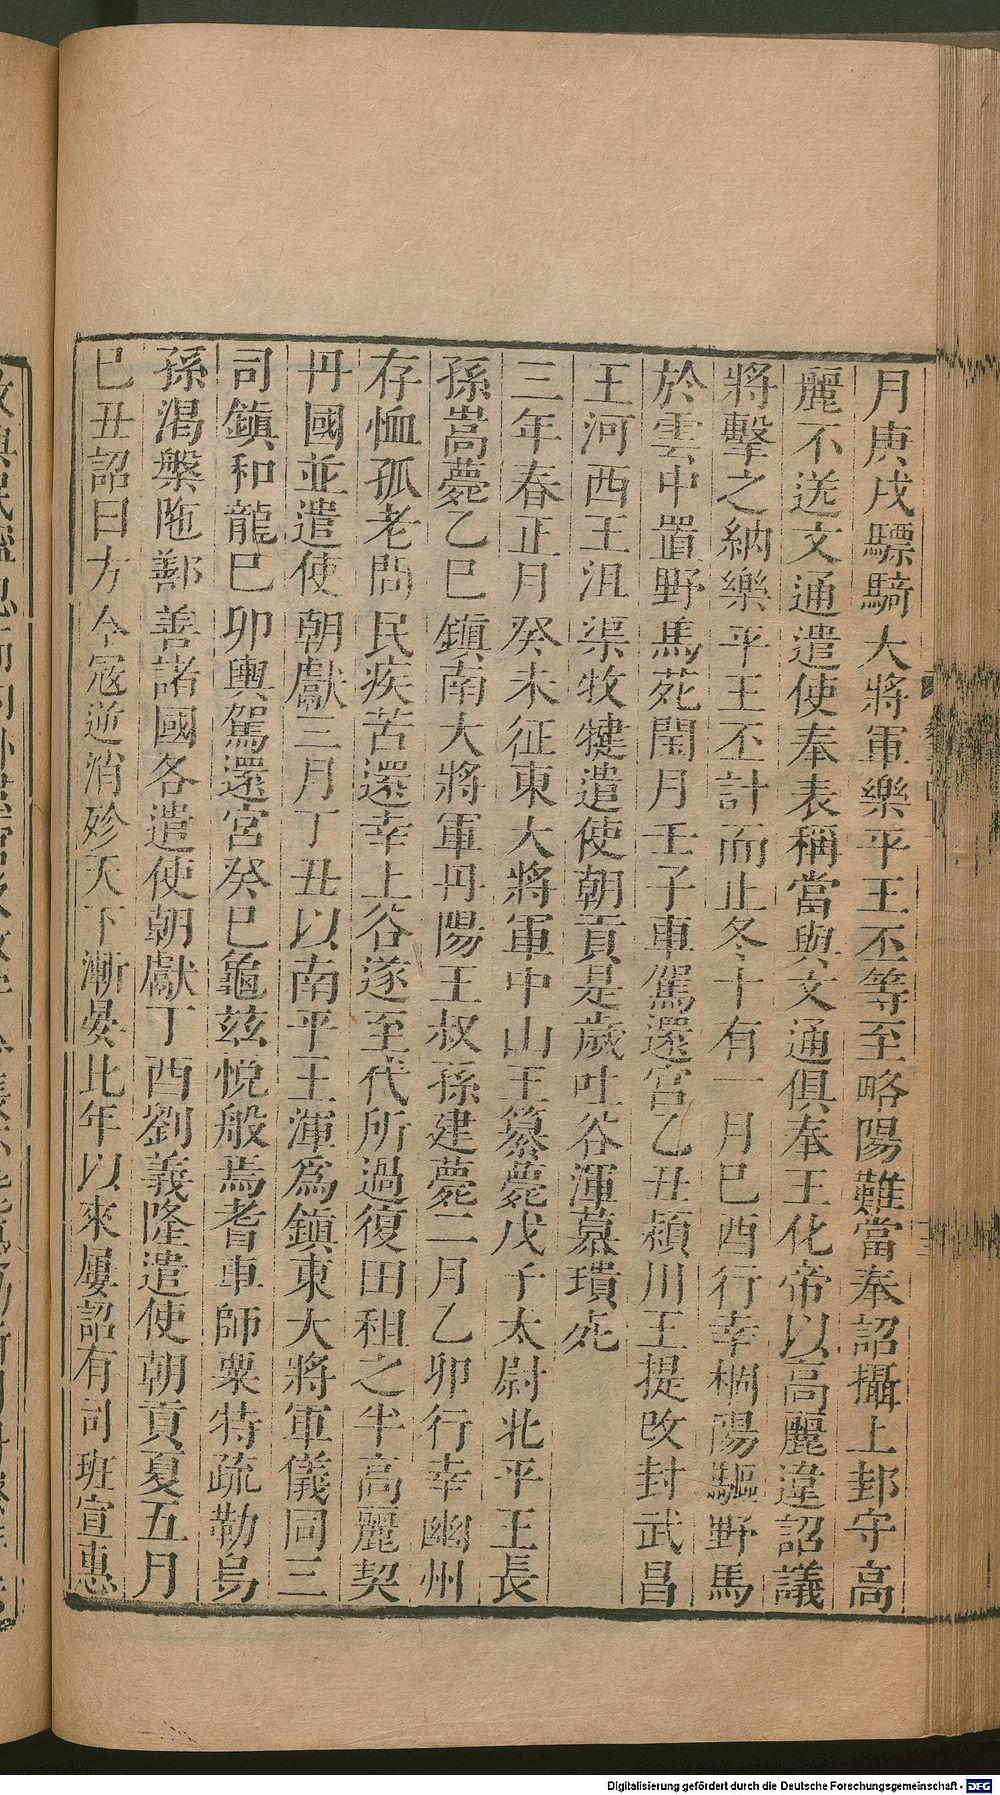 月庚戌驃騎大將軍樂平王丕等至略陽難當奉詔攝上邽守高
麗不送文通遣使奉表稱當與文通俱奉王化帝以高麗違詔議
將擊之納樂平王丕計而止冬十有一月巳酉行幸棝陽驅野馬
於雲中置野馬苑閏月壬子車駕還宮乙丑潁川王提改封武昌
王河西王沮渠牧犍遣使朝貢是歲吐谷渾慕璝死
三年春正月癸未征東大將軍中山王纂薨戊子太尉北平王長
孫嵩薨乙巳鎮南大將軍丹陽王叔孫建薨二月乙卯行幸幽州
存恤孤老問民疾苦還幸上谷遂至代所過復田租之半高麗契
丹國並遣使朝獻三月丁丑以南平王渾爲鎮東大將軍儀同三
司鎮和龍巳卯輿駕還宮癸巳龜茲悅般焉耆車師粟特疏勒烏
孫渴槃陁鄯善諸國各遣使朝獻丁酉劉義隆遣使朝貢夏五月
巳丑詔曰方今寇逆消殄天下漸晏比年以來屢詔有司班宣惠
Digitalisierung gefördert durch die Deutsche Forschungsgemeinschaft - DFG